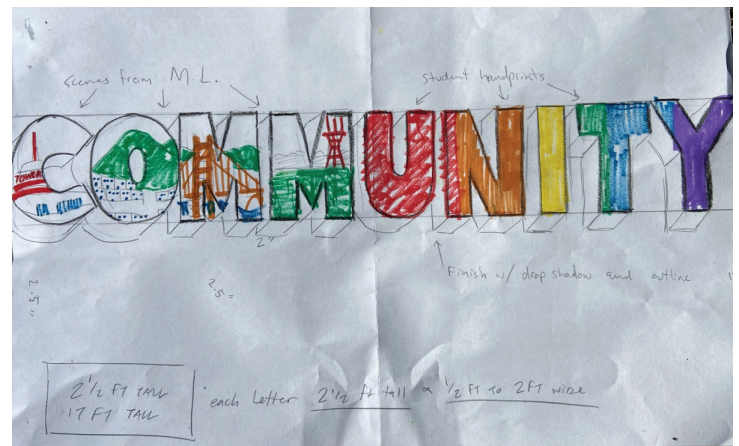 scenes from M.L.
student handprints
COMMUNITY
TOWER
2"
Finish w/ drop shadow and outline
2.5"
2.5"
2 1/2 FT TALL
17 FT TALL
each letter 2 1/2 ft tall 1/2 FT TO 2FT wide